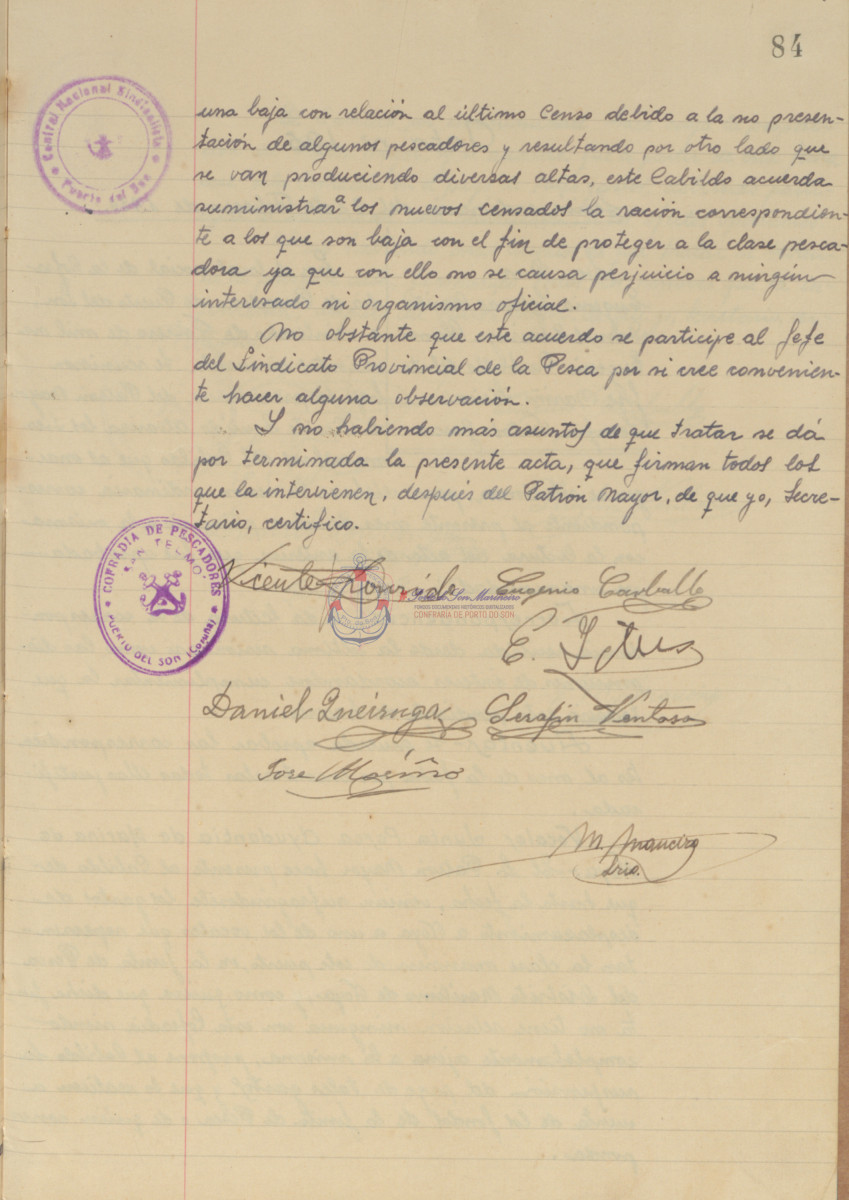 84
Central Nacional Sindicalista
Puerto del Son
una baja con relación al último Censo debido a la no presen-
tación de algunos pescadores y resultando por otro lado que
se van produciendo diversas altas, este Cabildo acuerda
suministrar a los nuevos censados la ración correspondien-
te a los que son baja con el fin de proteger a la clase pesca-
dora ya que con ello no se causa perjuicio a ningún
interesado ni organismo oficial.
No obstante que este acuerdo se participe al Jefe
del Sindicato Provincial de la Pesca por si cree convenien-
te hacer alguna observación.
Y no habiendo más asuntos de que tratar se dá
por terminada la presente acta, que firman todos los
que la intervienen, después del Patrón Mayor, de que yo, Secre-
tario, certifico.
COFRADIA DE PESCADORES
SAN TELMO
PUERTO DEL SON (Coruña)
Vicente
Eugenio Carballo
Son Marineiro
FONDOS DOCUMENTAIS HISTÓRICOS DIXITALIZADOS
CONFRARÍA DE PORTO DO SON
E.
Daniel Queiruga
Serafin Ventoso
Jose Mariño
M. Maneiro
Srio.